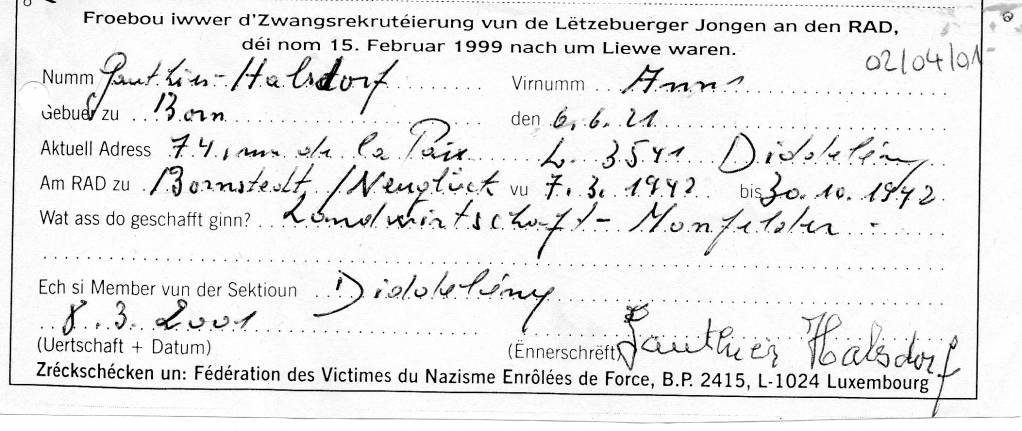 Froebou iwwer d'Zwangsrekrutéierung vun de Lëtzebuerger Jongen an den RAD,
déi nom 15. Februar 1999 nach um Liewe waren.
02/04/01
Numm Gauthier-Halsdorf Virnumm Anny
Gebuer zu Born den 6.6.21
Aktuell Adress 74, rue de la Paix L-3541 Diddeléng
Am RAD zu Bornstedt/Neuglück vu 7.3.1942 bis 30.10.1942
Wat ass do geschafft ginn? Landwirtschaft -
Ech si Member vun der Sektioun Diddeléng
8.3.2001
(Uertschaft + Datum) (Ënnerschrëft) Gauthier Halsdorf
Zréckschécken un: Fédération des Victimes du Nazisme Enrôlées de Force, B.P. 2415, L-1024 Luxembourg